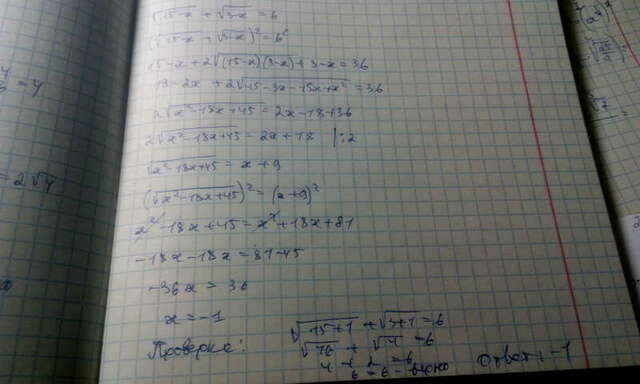 √15-x + √3-x = 6
(√15-x + √3-x)² = 6²
15-x+2√(15-x)(3-x)+3-x=36
18-2x+2√45-3x-15x+x² = 36
2√x²-18x+45 = 2x-18+36
2√x²-18x+45 = 2x+18 |:2
√x²-18x+45 = x+9
(√x²-18x+45)² = (x+9)²
x²-18x+45=x²+18x+81
-18x-18x=81-45
-36x = 36
x=-1
Проверка: √15+1 + √3+1 = 6
√16 + √4 = 6
4 + 2 = 6
6 = 6 - верно
Ответ: -1
= 4
= 2√4